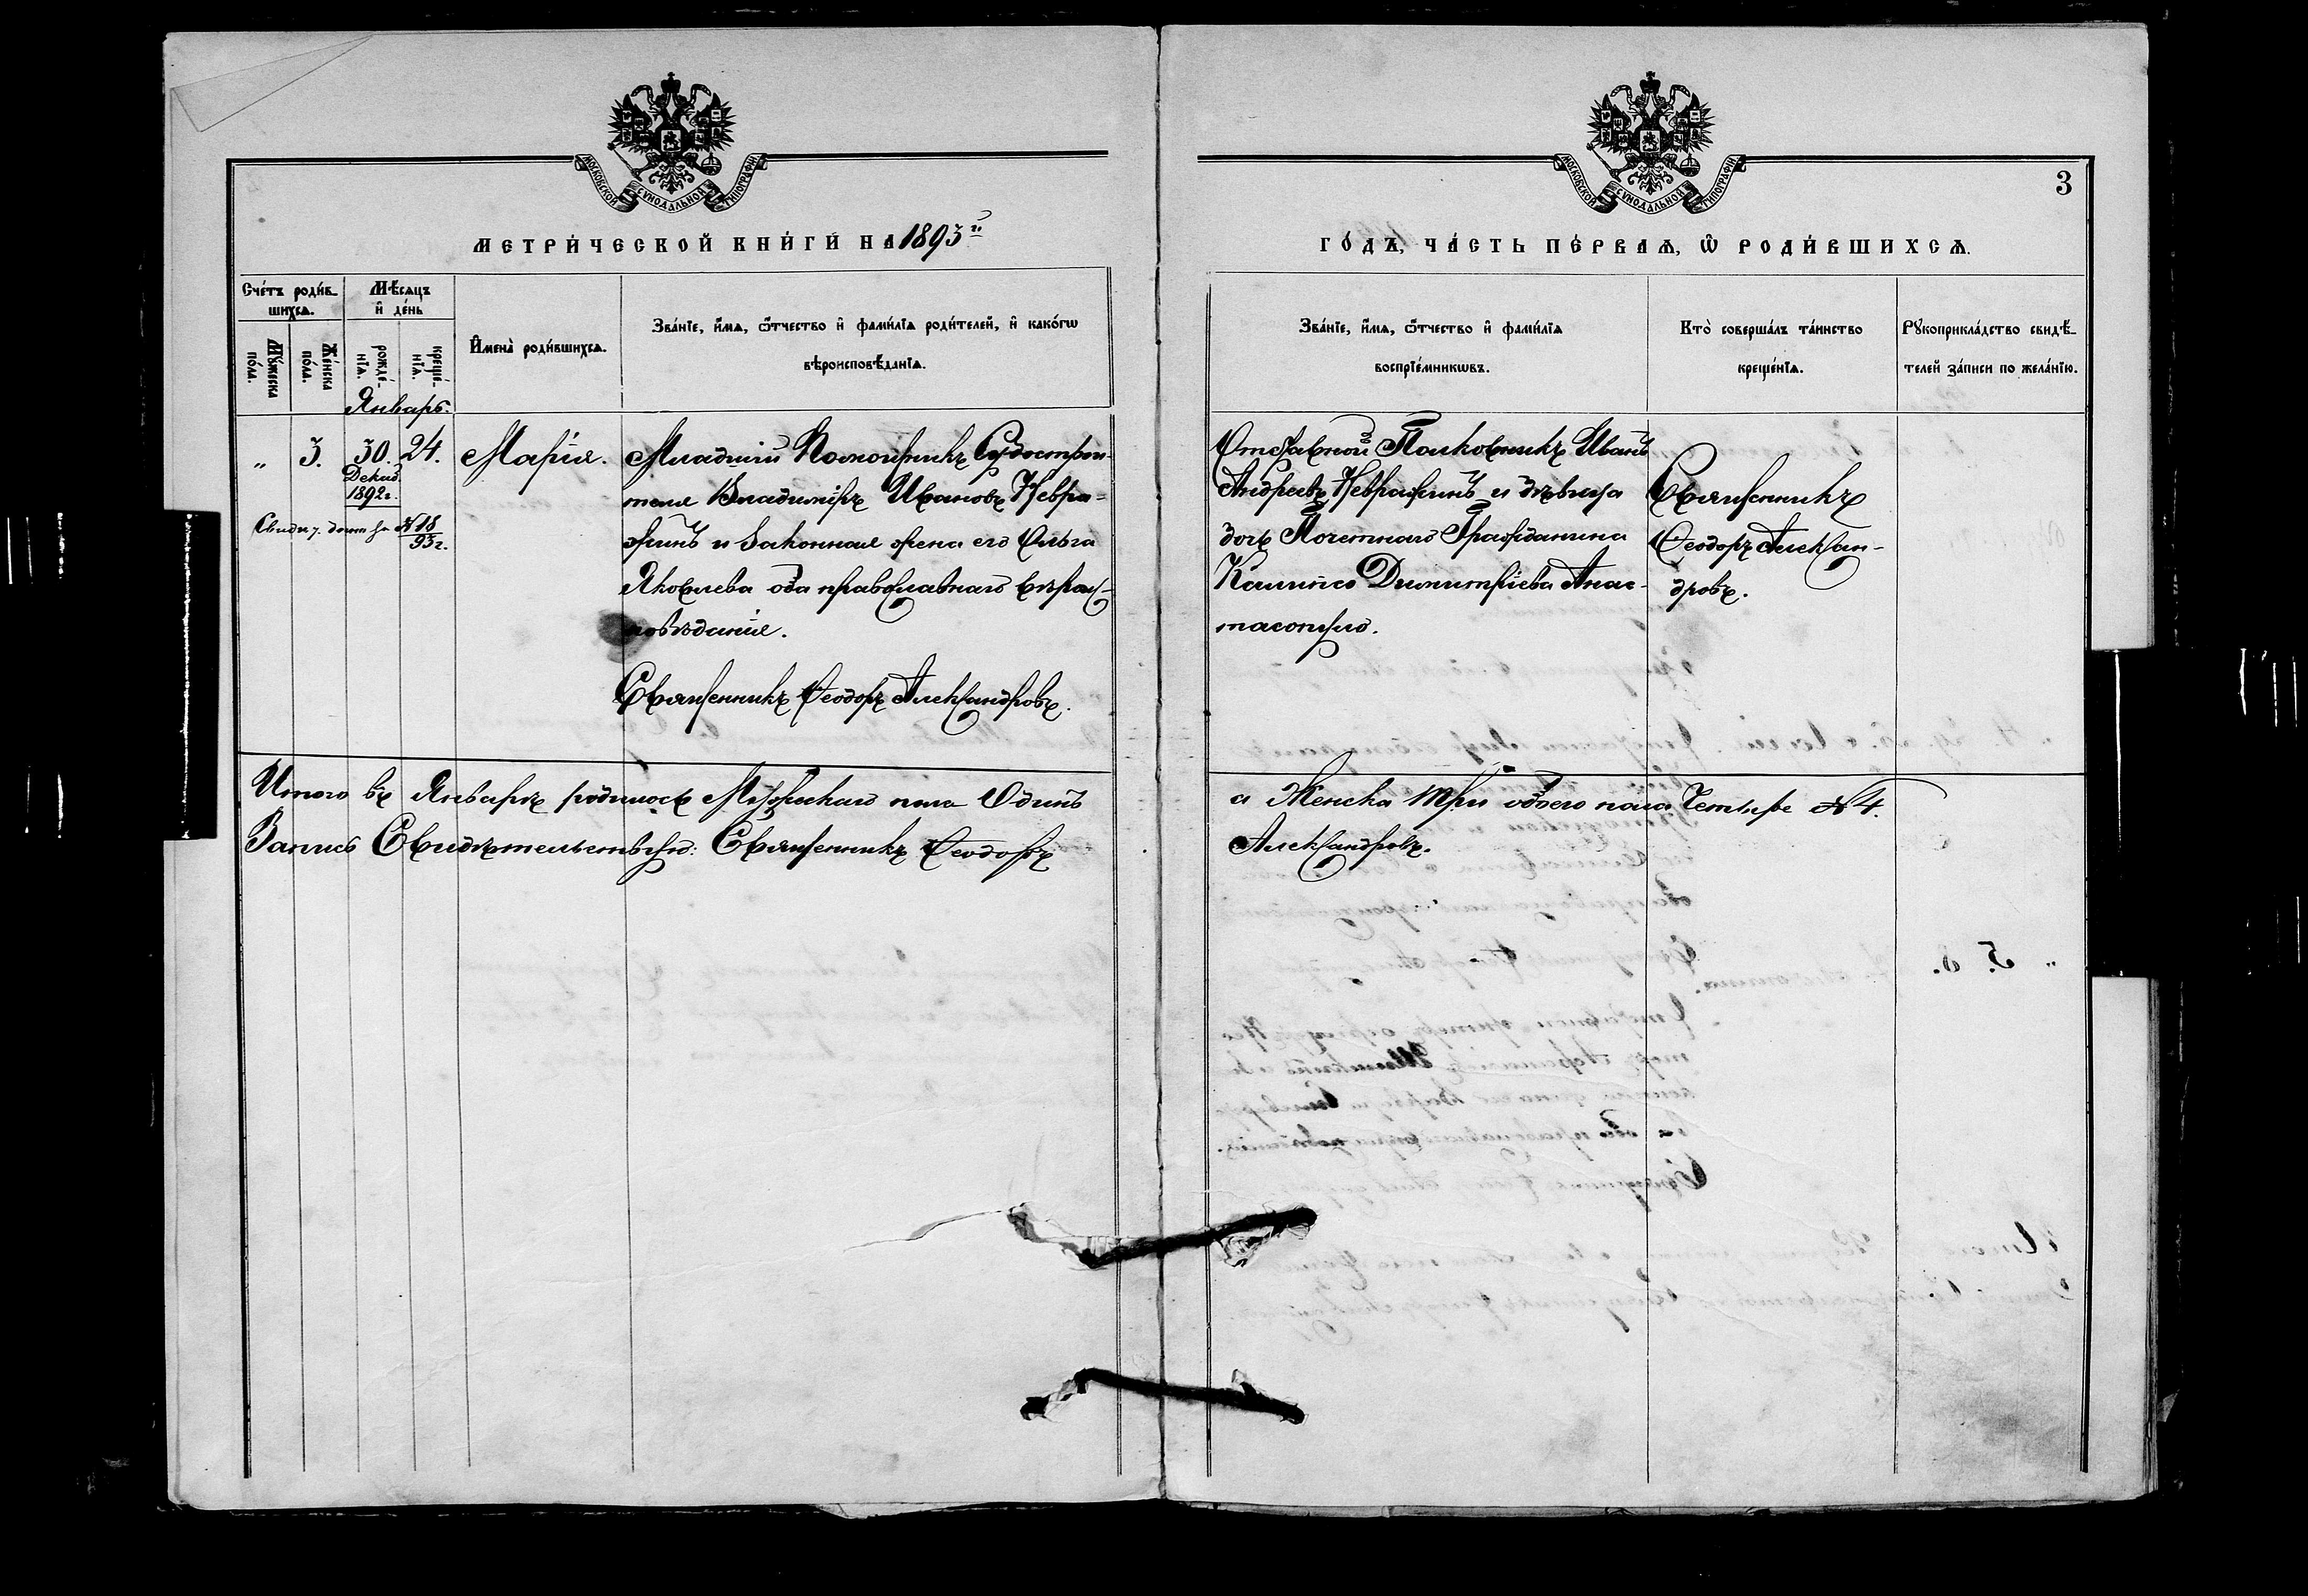 МОСКОВСКОЙ СѴНОДАЛЬНОЙ ТИПОГРАФІИ
МЕТРИ́ЧЕСКОЙ КНИ́ГИ НА 1893й
Сче́тъ роди́вшихсѧ.
Мꙋ́жеска по́ла.
Же́нска по́ла.
Мѣ́сѧцъ и҆ де́нь
рожде́нїѧ.
креще́нїѧ.
И҆мена̀ роди́вшихсѧ.
Зва́нїе, и҆́мѧ, ѻ҆́тчество и҆ фами́лїѧ роди́телей, и҆ како́гѡ
вѣроисповѣ́данїѧ.
Январь.
" 3. 30. 24. Марія.
Декаб.
1892г.
№ 18
93г.
Младшій Помощникъ Судострои-
теля Владиміръ Ивановъ Невра-
жинъ и законная жена его Ольга
Яковлева оба православнаго вѣрои-
повѣданія.
Священникъ Ѳеодоръ Александровъ.
Итого въ Январѣ родилось Мужескаго пола Одинъ
Запись Свидѣтельствую: Священникъ Ѳеодоръ
МОСКОВСКОЙ СѴНОДАЛЬНОЙ ТИПОГРАФІИ
3
ГО́ДЪ, ЧА́СТЬ ПЕ́РВАѦ, Ѡ҆ РОДИ́ВШИХСѦ.
Зва́нїе, и҆́мѧ, ѻ҆́тчество и҆ фами́лїѧ
воспрїе́мникѡвъ.
Кто̀ соверша́лъ та́инство
креще́нїѧ.
Рꙋкоприкла́дство свидѣ́-
телей за́писи по жела́нїю.
Отставной Полковникъ Иванъ
Андреевъ Невражинъ и дѣвица
дочь Почетнаго Гражданина
Димитріева Анас-
Священникъ
Ѳеодоръ Алексан-
дровъ.
а Женска три обоего пола Четыре № 4.
Александровъ.